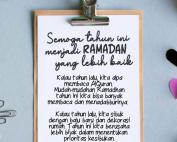 Semoga tahun ini
menjadi RAMADAN
yang lebih baik
Kalau tahun lalu, kita apa
membaca AlQuran
Mudah-mudahan Ramadhan
tahun ini kita bisa banyak
membaca dan mentadabburinya
Kalau tahun lalu, kita sibuk
dengan baju baru dan dekorasi
rumah. Tahun ini kita berusaha
lebih bijak dalam menentukan
prioritas kesibukan.